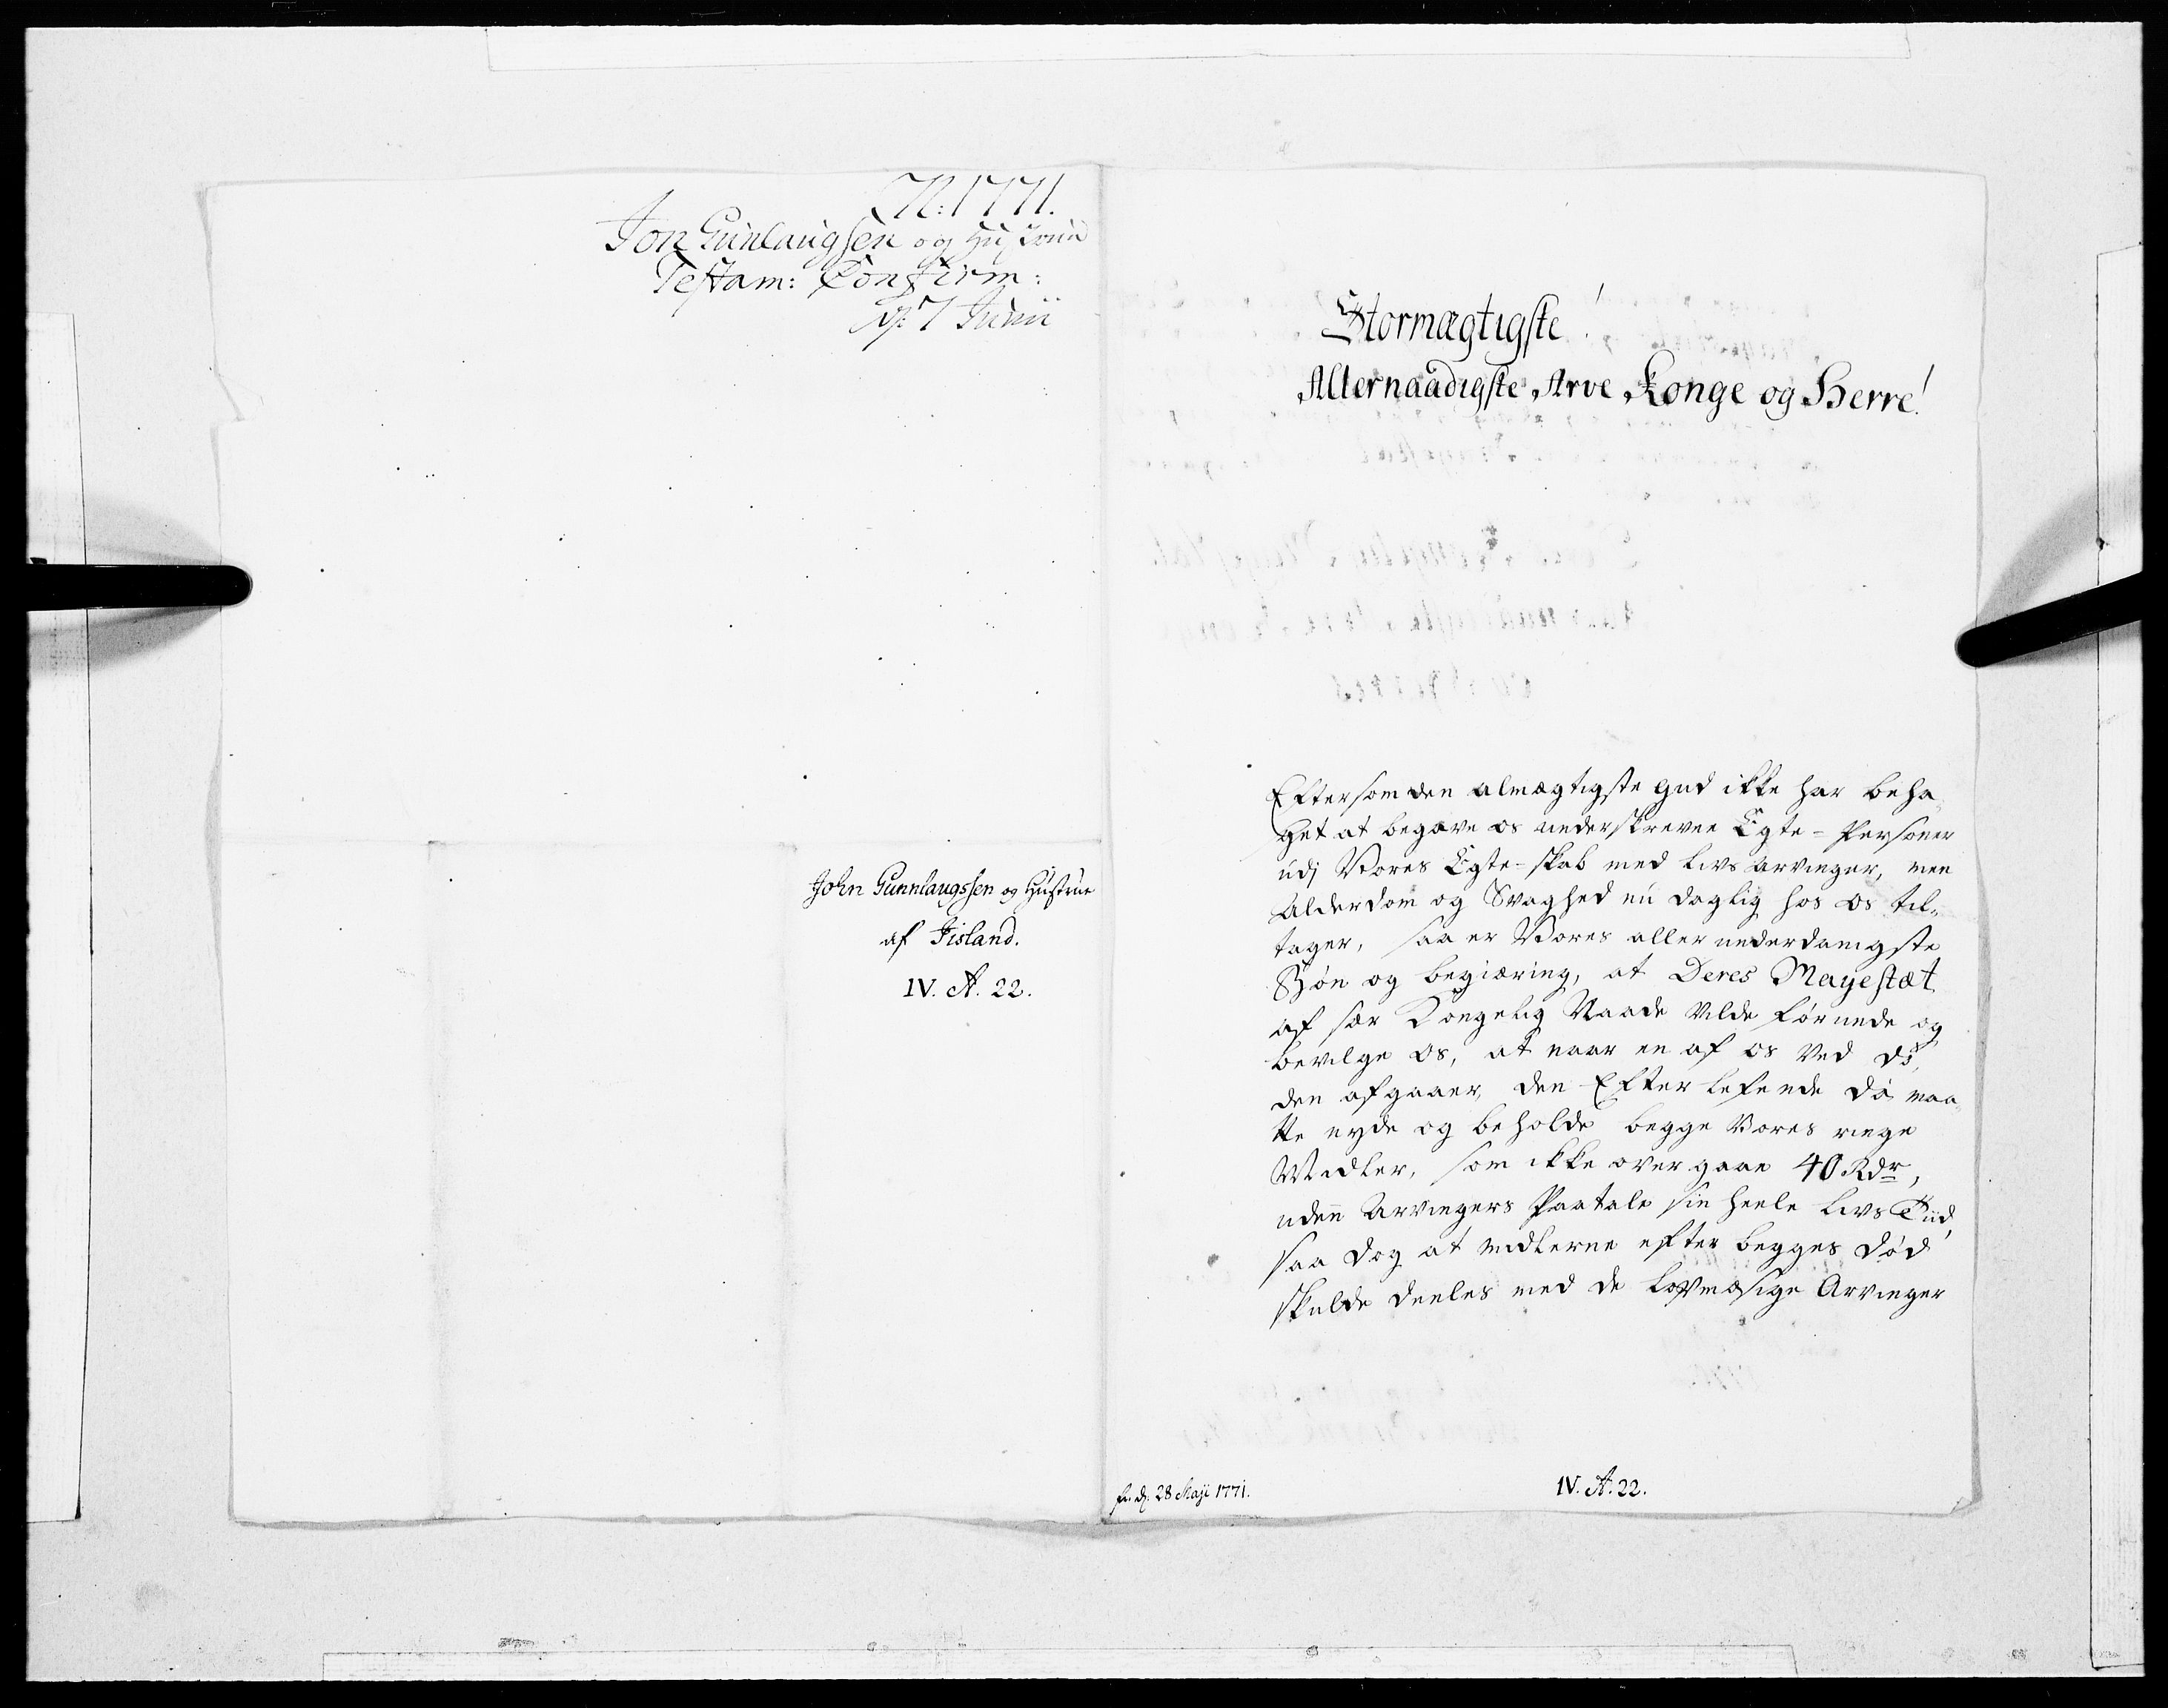 1771.
Jon Gunlaugsen og Hustrue
Testam: Confirm:
7 Junii
John Gunnlaugssen og Hustrue
af Jisland.
IV. A. 22.
Stormægtigste!
Allernaadigste Arve Konge og Herre!
Eftersom den almægtigste Gud ikke har beha-
get at begave os underskrevne Egte-Personer
udj Vores Egte-skab med Livs Arvinger, men
Alderdom og Svaghed nu daglig hos os til-
tager, saa er Vores aller underdanigste
Bøn og begiæring, at Deres Mayestæt
af sær Kongelig Naade Vilde forunde og
bevilge os, at naar en af os Ved Dø-
den afgaaer, den Efterlefende da maa-
tte nyde og beholde begge Vores ringe
Midler, som ikke overgaae 40 Rdr,
uden Arvingers Paatale sin heele Livs Tiid,
saa dog at midlerne efter begges Død
skulde deeles med de Lovmæsige Arvinger
d: 28 Maji 1771.
IV. A. 22.